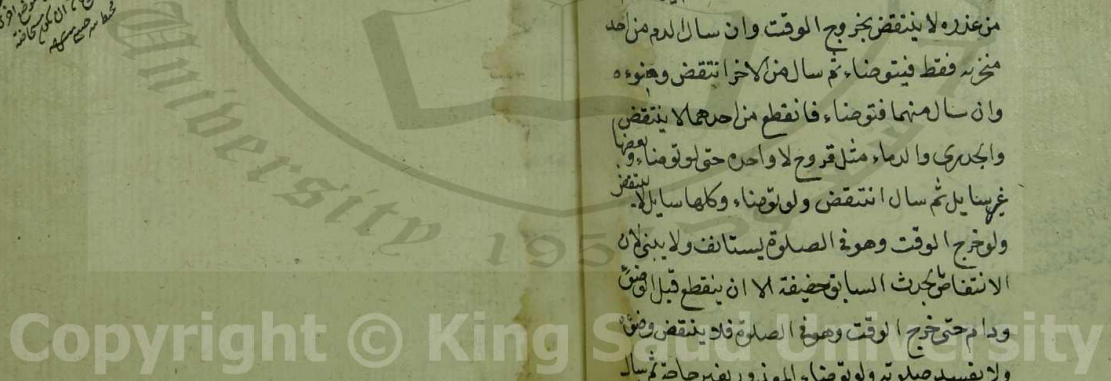 من عذره لا ينتقض بخروج الوقت وان سال الدم من احد
منخريه فقط فيتوضاء ثم سال من الاخر انتقض وضوءه
وان سال منهما فتوضاء فانقطع من احدهما لا ينتقض
والجدرى والدماء مثل قروح لا واحده حتى لو توضاء وبعضها
غير سايل ثم سال انتقض ولو توضاء وكلها سايل لا ينتقض
ولو خرج الوقت وهو فى الصلوة يستانف ولا يبنى لان
الانتقاض بالحدث السابق حقيقة الا ان ينقطع قبل الوضوء
ودام حتى خرج الوقت وهو فى الصلوة فلا ينتقض وضوء
ولا يفسد صلوته ولو توضاء المعذور بغير حاجة ثم سال
University
195
Copyright © King Saud University